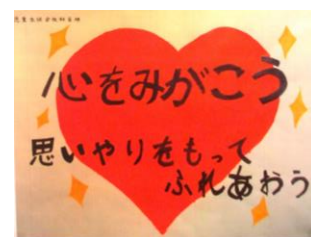 心をみがこう
思いやりをもって
ふれあおう